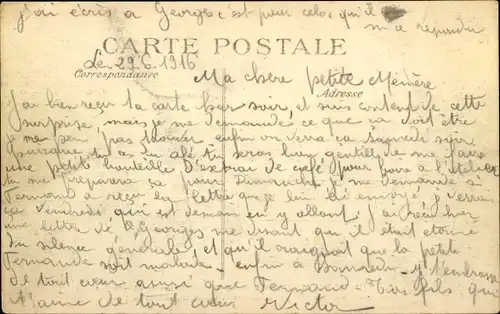 j'ai écris a Georges c'est pour celas qu'il
m'a répondu
CARTE POSTALE
Le 29.6.1916
Correspondance
Adresse
Ma chere petite Mémère
J'ai bien reçu ta carte hier soir, et suis content de cette
surprise mais je me demande ce que ça doit être
je ne peu pas trouver enfin on verra ça samedi soir
puisque tu as du café tu seras bien gentille de me faire
une petite bouteille d'extrai de café pour boire a l'atelier
tu me preparera ça pour Dimanche je me demande si
Fernand a reçu la lettre que je lui ai envoyé j'verrai
ça vendredi qui est demain en y allant j'ai reçu hier
une lettre de Georges me disant qu'il était étonné
du silence generale et qu'il craignait que la petite
Fernande soit malade enfin a Samedi j't'embrasse
de tout cœur ainsi que Fernand Ton fils qui
t'aime de tout cœur Victor